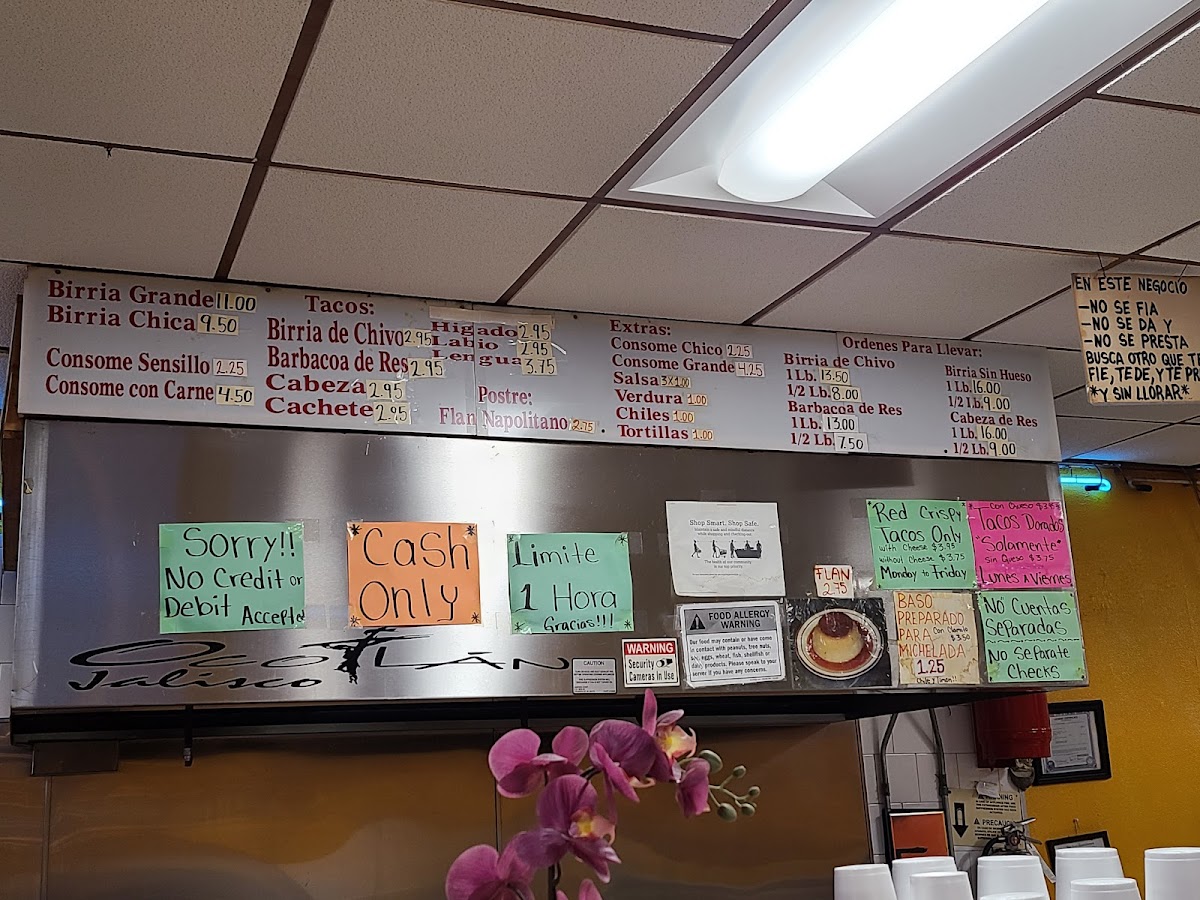 Birria Grande 11.00
Birria Chica 9.50
Consome Sensillo 2.25
Consome con Carne 4.50
Tacos:
Birria de Chivo 2.95
Barbacoa de Res 2.95
Cabeza 2.95
Cachete 2.95
Higado 2.95
Labio 2.95
Lengua 3.75
Postre:
Flan Napolitano 2.75
Extras:
Consome Chico 2.25
Consome Grande 4.25
Salsa 3x1.00
Verdura 1.00
Chiles 1.00
Tortillas 1.00
Ordenes Para Llevar:
Birria de Chivo
1 Lb. 13.50
1/2 Lb. 8.00
Barbacoa de Res
1 Lb. 13.00
1/2 Lb. 7.50
Birria Sin Hueso
1 Lb. 16.00
1/2 Lb. 9.00
Cabeza de Res
1 Lb. 16.00
1/2 Lb. 9.00
EN ESTE NEGOCIO
-NO SE FIA
-NO SE DA Y
-NO SE PRESTA
BUSCA OTRO QUE TE
FIE, TE DE, Y TE PR
*Y SIN LLORAR*
Sorry!!
No Credit or
Debit Accepte
Cash
Only
Limite
1 Hora
Gracias!!!
Shop Smart. Shop Safe.
FLAN
2.75
Red Crispy
Tacos Only
with Cheese $3.95
without Cheese $3.75
Monday to Friday
Con Queso $3.95
Tacos Dorados
"Solamente"
Sin Queso $3.75
Lunes a Viernes
BASO
PREPARADO
PARA Con Clamato $3.50
MICHELADA
1.25
Chile y limon!!
No Cuentas
Separadas
No Separate
Checks
Ocotlán
Jalisco
CAUTION
WARNING
Security
Cameras in Use
FOOD ALLERGY
WARNING
Our food may contain or have come
in contact with peanuts, tree nuts,
soy, eggs, wheat, fish, shellfish or
dairy products. Please speak to your
server if you have any concerns.
WARNING